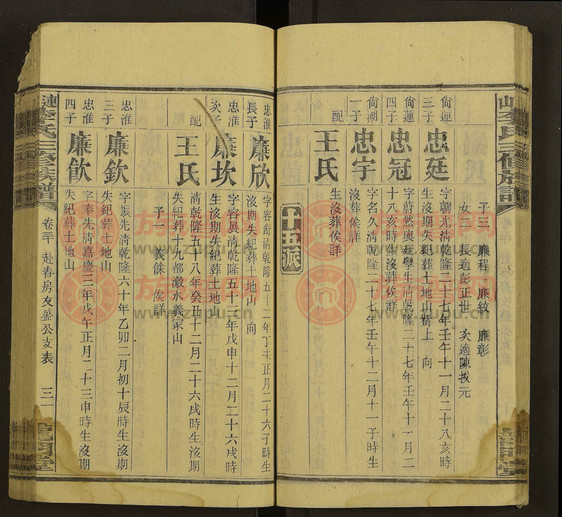 李氏三修族譜
子三 廉程 廉敏 廉彰
女二 長適彭正世 次適陳拔元
尙蓮三子
忠廷
字廣光清乾隆二十七年壬午十一月二十八亥時
生沒期失紀葬土地山嘴上 向
尙蓮四子
忠冠
字蔚然
清乾隆二十七年壬午十一月二
十八亥時生沒葬俟詳
尙湖一子
忠宇
字名久清乾隆二十七壬午十二月十一子時生
沒葬俟詳
配
王氏
生沒葬俟詳
十五派
忠淮長子
廉欣
清乾隆五十二年丁未正月二十六子時生
沒期失紀葬土地山 向
忠淮次子
廉坎
字容襄清乾隆五十三年戊申十二月二十六戌時
生沒期失紀葬土地山
配
王氏
清乾隆五十八年癸丑十二月二十六戌時生沒期
失紀葬十九都
山
子一 義
俟詳
忠淮三子
廉欽
字振先清乾隆六十年乙卯二月初十辰時生沒期
失紀葬土地山
忠淮四子
廉飲
字奉先清嘉慶三年戊午正月二十三申時生沒期
失紀葬土地山
漣李氏三修族譜
卷三十
赴春房友盛公支表
三一